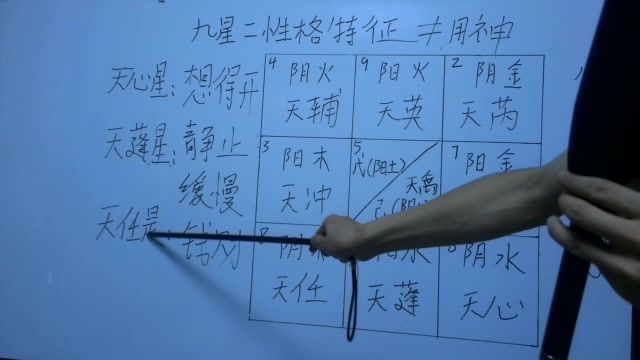 九星二性格特征≠用神
天心星:想得开
天蓬星:静止
缓慢
天任星:钱财
4 阴火
天辅
9 阳火
天英
2 阴金
天芮
3 阳木
天冲
5
戊(阳土)
天禽
己(阴
7 阳金
8 阴木
天任
阳水
天蓬
6 阴水
天心